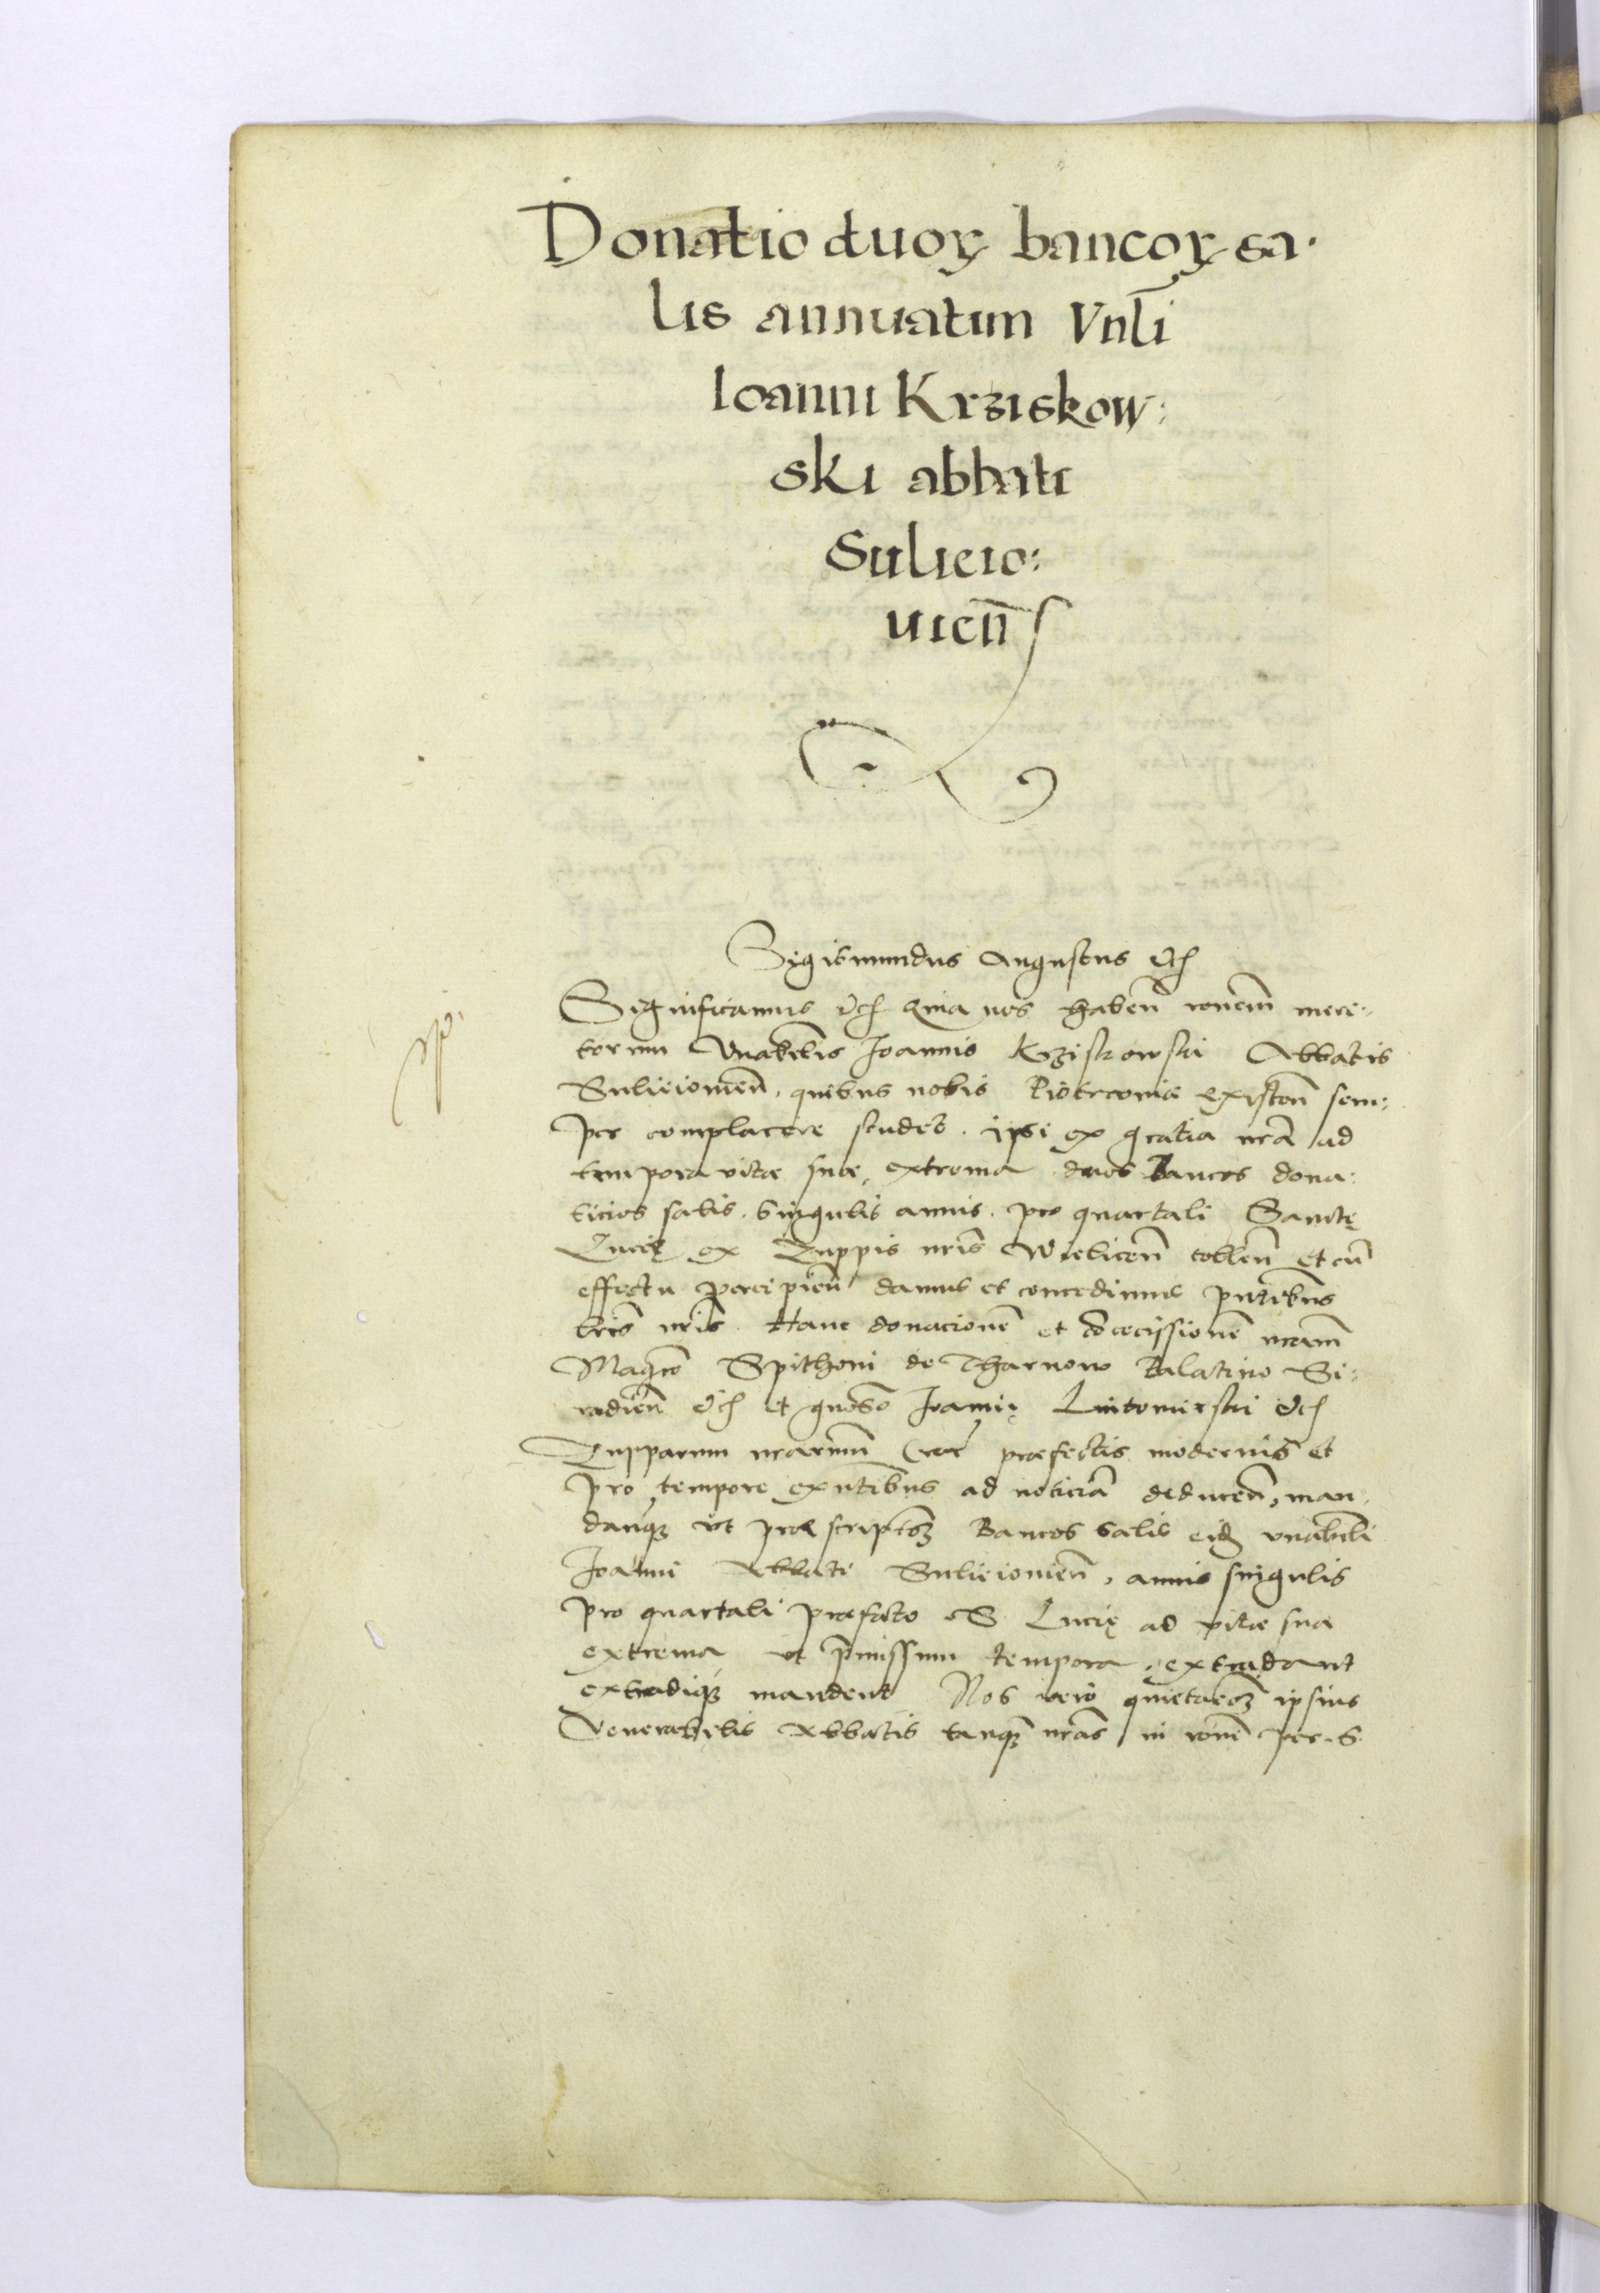 Donatio duoꝝ bancoꝝ sa·
lis annuatim Vnłi
Ioanni Krziskow:
ski abbati
Sulieio:
uien̄ſ
Sigismundus Augustus etc
Significamus etc Quia nos haben̄ ronem̄ mere:
torum Vnabilis Joannis Krziskowski Abbatis
Sulieiouien̄, quibus nobis Piotrcouiæ existen̄ sem:
per complacere studet. ipsi ex gratia nr̄a ad
tempora vitæ suæ, extrema duos Bancos dona:
ticios salis. singulis annis. pro quartali Sanctę
Lucię ex Zuppis nr̄is Wielicen̄ tollen̄ et cū
effectu percipien̄ damus et concedimus pn̄tibus
lr̄is nr̄is. Hanc donacionē et cōcessionē nram̄
Magco Spithoni de Tharnow Palatino Si:
radien̄ etc et gnoso Joannį Lutomirski etc
Zupparum nrarum Crac præfectis modernis et
pro tempore existn̄tibus ad noticiā deducen̄, man:
damꝰ vt præscriptos Bancos salis eidē vnabili
Joanni Abbati Sulieiouien̄, annis singulis
pro quartali præfato S Lucię ad vitæ suæ
extrema vt p̄missum tempora, extradant
extradiqꝫ mandent Nos vero quietacōꝫ ipsius
Venerabilis Abbatis tanqꝫ nr̄as in ronē per. S.